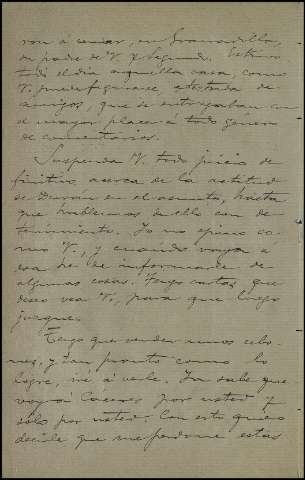 ron á cenar, en Granadilla,
su padre de V. y Segundo. Estuvo
todo el dia aquella casa, como
V. puede figurarse, atestada de
amigos, que se entregaban con
el mayor placer á todo género
de comentarios.
Suspenda V. todo juicio de
finitivo, acerca de la actitud
de Duran en el asunto, hasta
que hablemos de ello con de
tenimiento. Yo no opino co
mo V., y cuando vaya á
esa he de informarle de
algunas cosas. Tengo cartas que
deseo vea V., para que luego
juzgue.
Tengo que vender unos cebo
nes, y tan pronto como lo
logre, iré á verle. Ya sabe que
voy á Cáceres por usted y
sólo por usted. Con esto quiero
decirle que me perdone estas